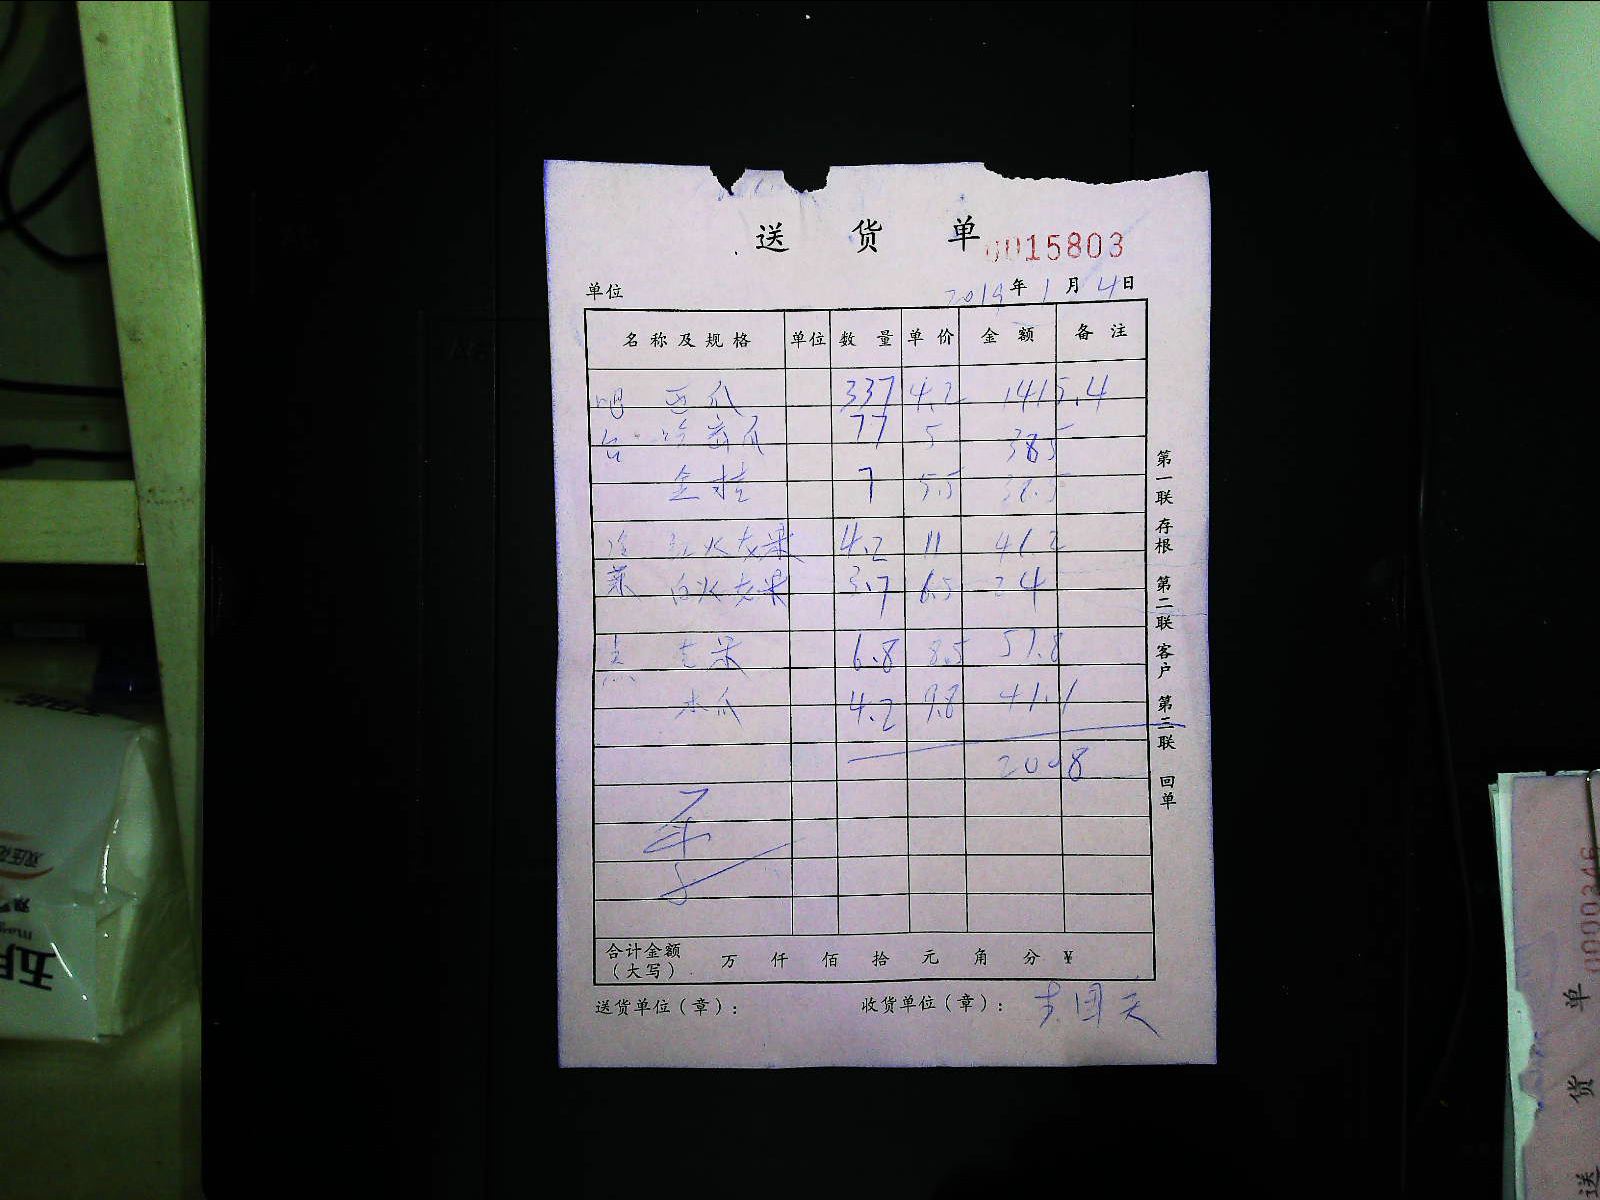 送 货 单 0015803
单位 2019年1月4日
名称及规格 单位 数量 单价 金额 备注
吧 西瓜 337 4.2 1415.4
台 哈密瓜 77 5 385
金桔 7 5.5 38.5
冷 红火龙果 4.2 11 41.2
菜 白火龙果 3.7 6.5 24
6.8 8.5 57.8
木瓜 4.2 9.8 41.1
2008
合计金额
(大写) 万 仟 佰 拾 元 角 分 ¥
送货单位(章): 收货单位(章):
第一联 存根 第二联 客户 第三联 回单
0000346
送 货 单